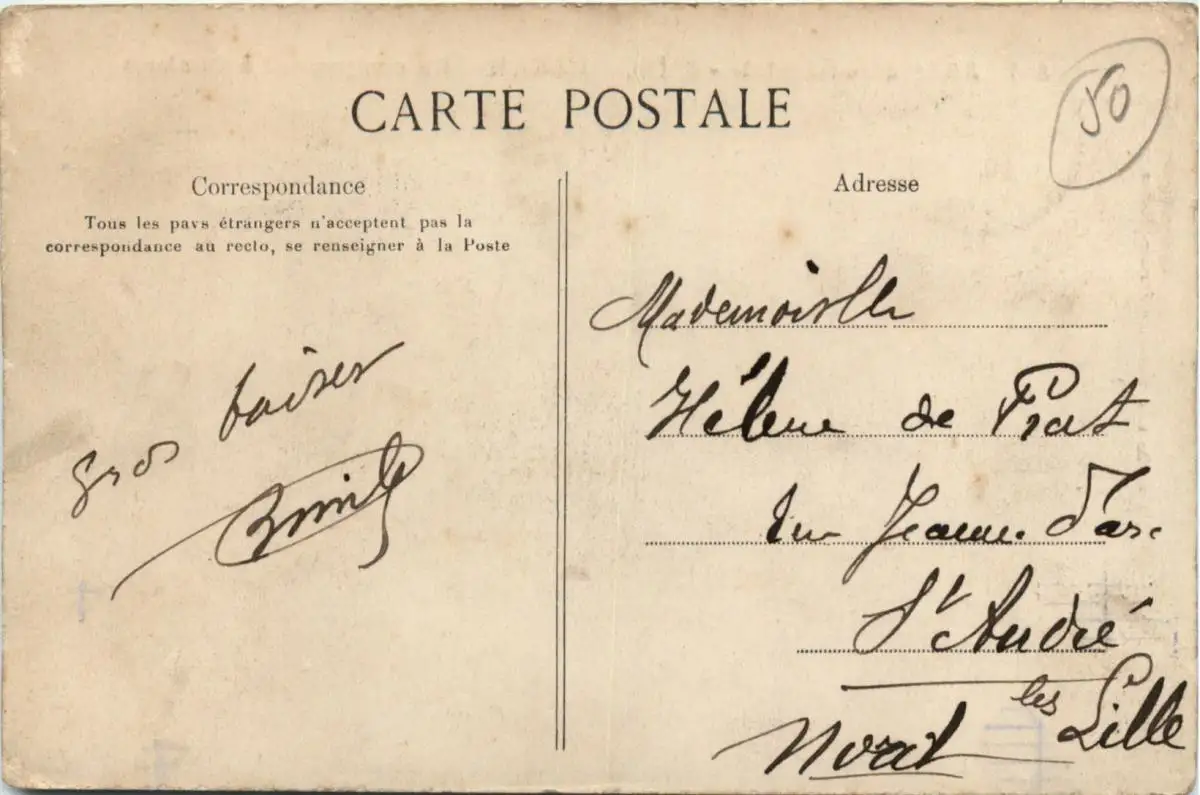 CARTE POSTALE
50
Correspondance
Tous les pays étrangers n'acceptent pas la
correspondance au recto, se renseigner à la Poste
gros baiser
Adresse
Mademoiselle
Hélène de Prat
rue Jeanne d'arc
St André
les Lille
Nord